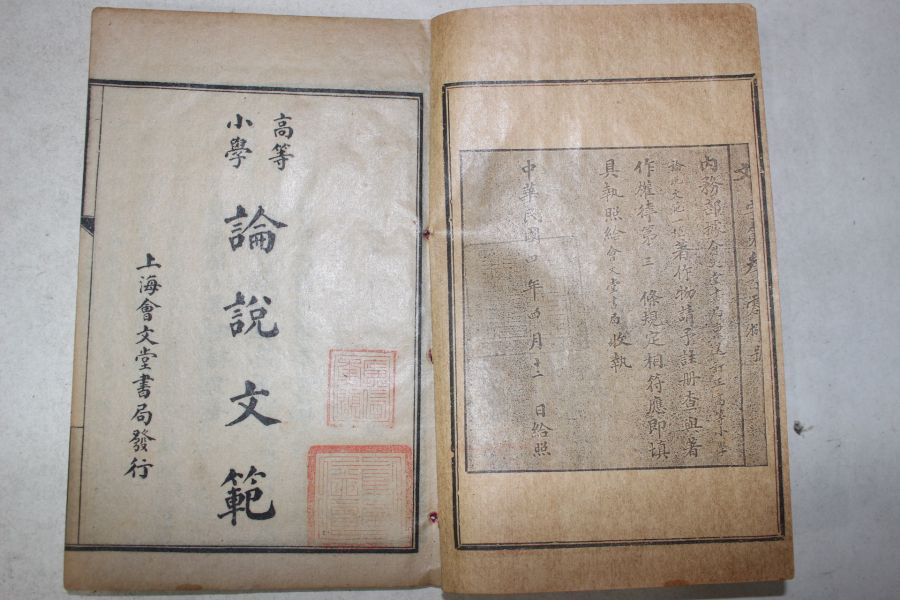 高等
小學
論說文範
上海會文堂書局發行
內務部據會文堂書局稟呈訂正高等小學
論說文範 著作物請予註册查與著
作權律第三 條規定相符應即填
具執照給會文堂書局收執
中華民國四年四月十二 日給照